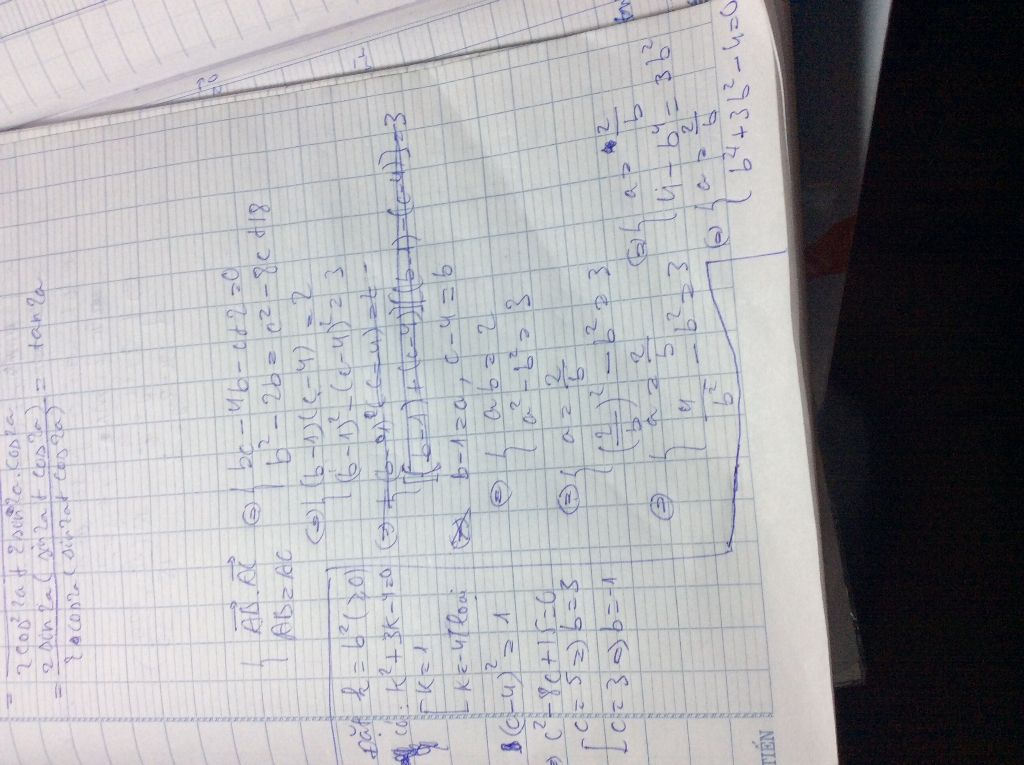 = 2cos²2a + 2sin2a.cos2a
= 2sin2a(sin2a + cos2a) / 2cos2a(sin2a + cos2a) = tan2a
{ AB.AC
AB = AC
(=) { bc - 4b - c + 2 = 0
b² - 2b = c² - 8c + 18
(=) { (b-1)(c-4) = 2
(b-1)² - (c-4)² = 3
b-1 = a, c-4 = b
(=) { ab = 2
a² - b² = 3
(=) { a = 2/b
(2/b)² - b² = 3
(=) { a = 2/b
4/b² - b² = 3
(=) { a = 2/b
4 - b⁴ = 3b²
(=) { a = 2/b
b⁴ + 3b² - 4 = 0
Đặt k = b² (≥0)
có: k² + 3k - 4 = 0
[ k = 1
k = -4 (loại
(c-4)² = 1
=) c² - 8c + 15 = 0
[ c = 5 =) b = 3
c = 3 =) b = -1
TIẾN